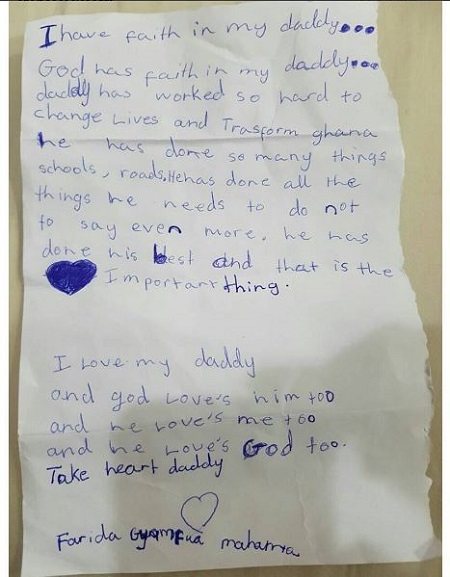 I have faith in my daddy...
God has faith in my daddy...
daddy has worked so hard to
change Lives and Trasform ghana
he has done so many things
schools, roads. He has done all the
things he needs to do not
to say even more. he has
done his best and that is the
Important thing.
I Love my daddy
and god Love's him too
and he Love's me too
and he Love's God too.
Take heart daddy
Farida Gyamfua mahama